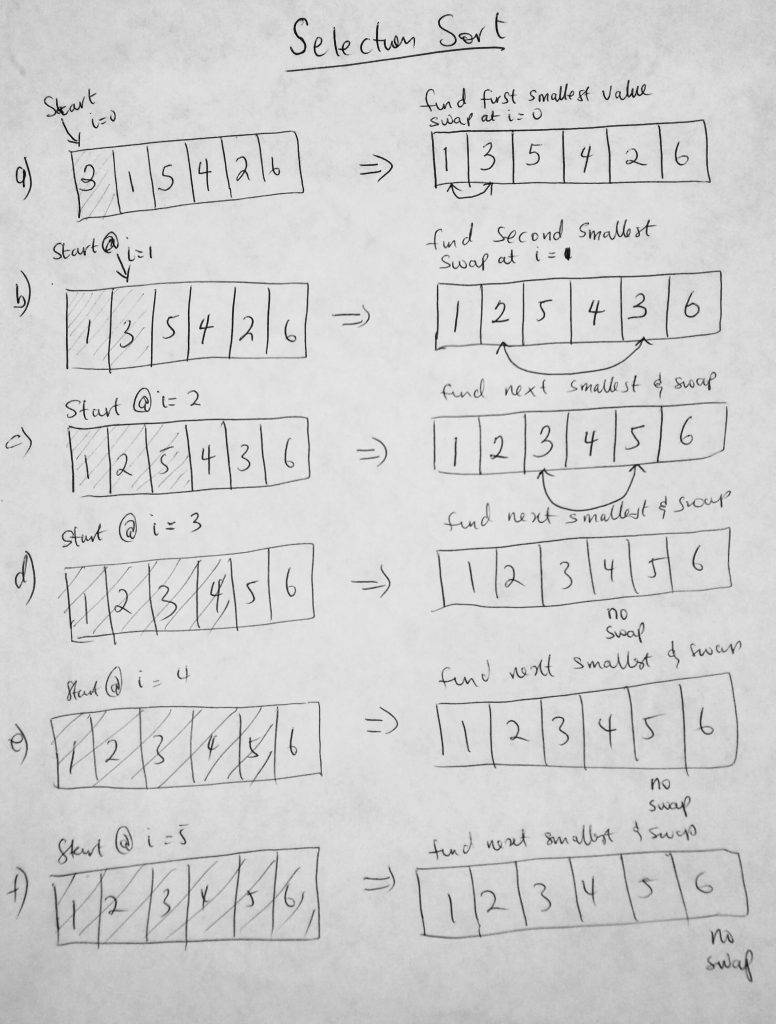 Selection Sort
Start
i=0
find first smallest value
swap at i=0
a) 3 1 5 4 2 6 => 1 3 5 4 2 6
Start @ i=1
find second smallest
swap at i=1
b) 1 3 5 4 2 6 => 1 2 5 4 3 6
Start @ i=2
find next smallest & swap
c) 1 2 5 4 3 6 => 1 2 3 4 5 6
Start @ i=3
find next smallest & swap
d) 1 2 3 4 5 6 => 1 2 3 4 5 6
no
swap
Start @ i=4
find next smallest & swap
e) 1 2 3 4 5 6 => 1 2 3 4 5 6
no
swap
Start @ i=5
find next smallest & swap
f) 1 2 3 4 5 6 => 1 2 3 4 5 6
no
swap